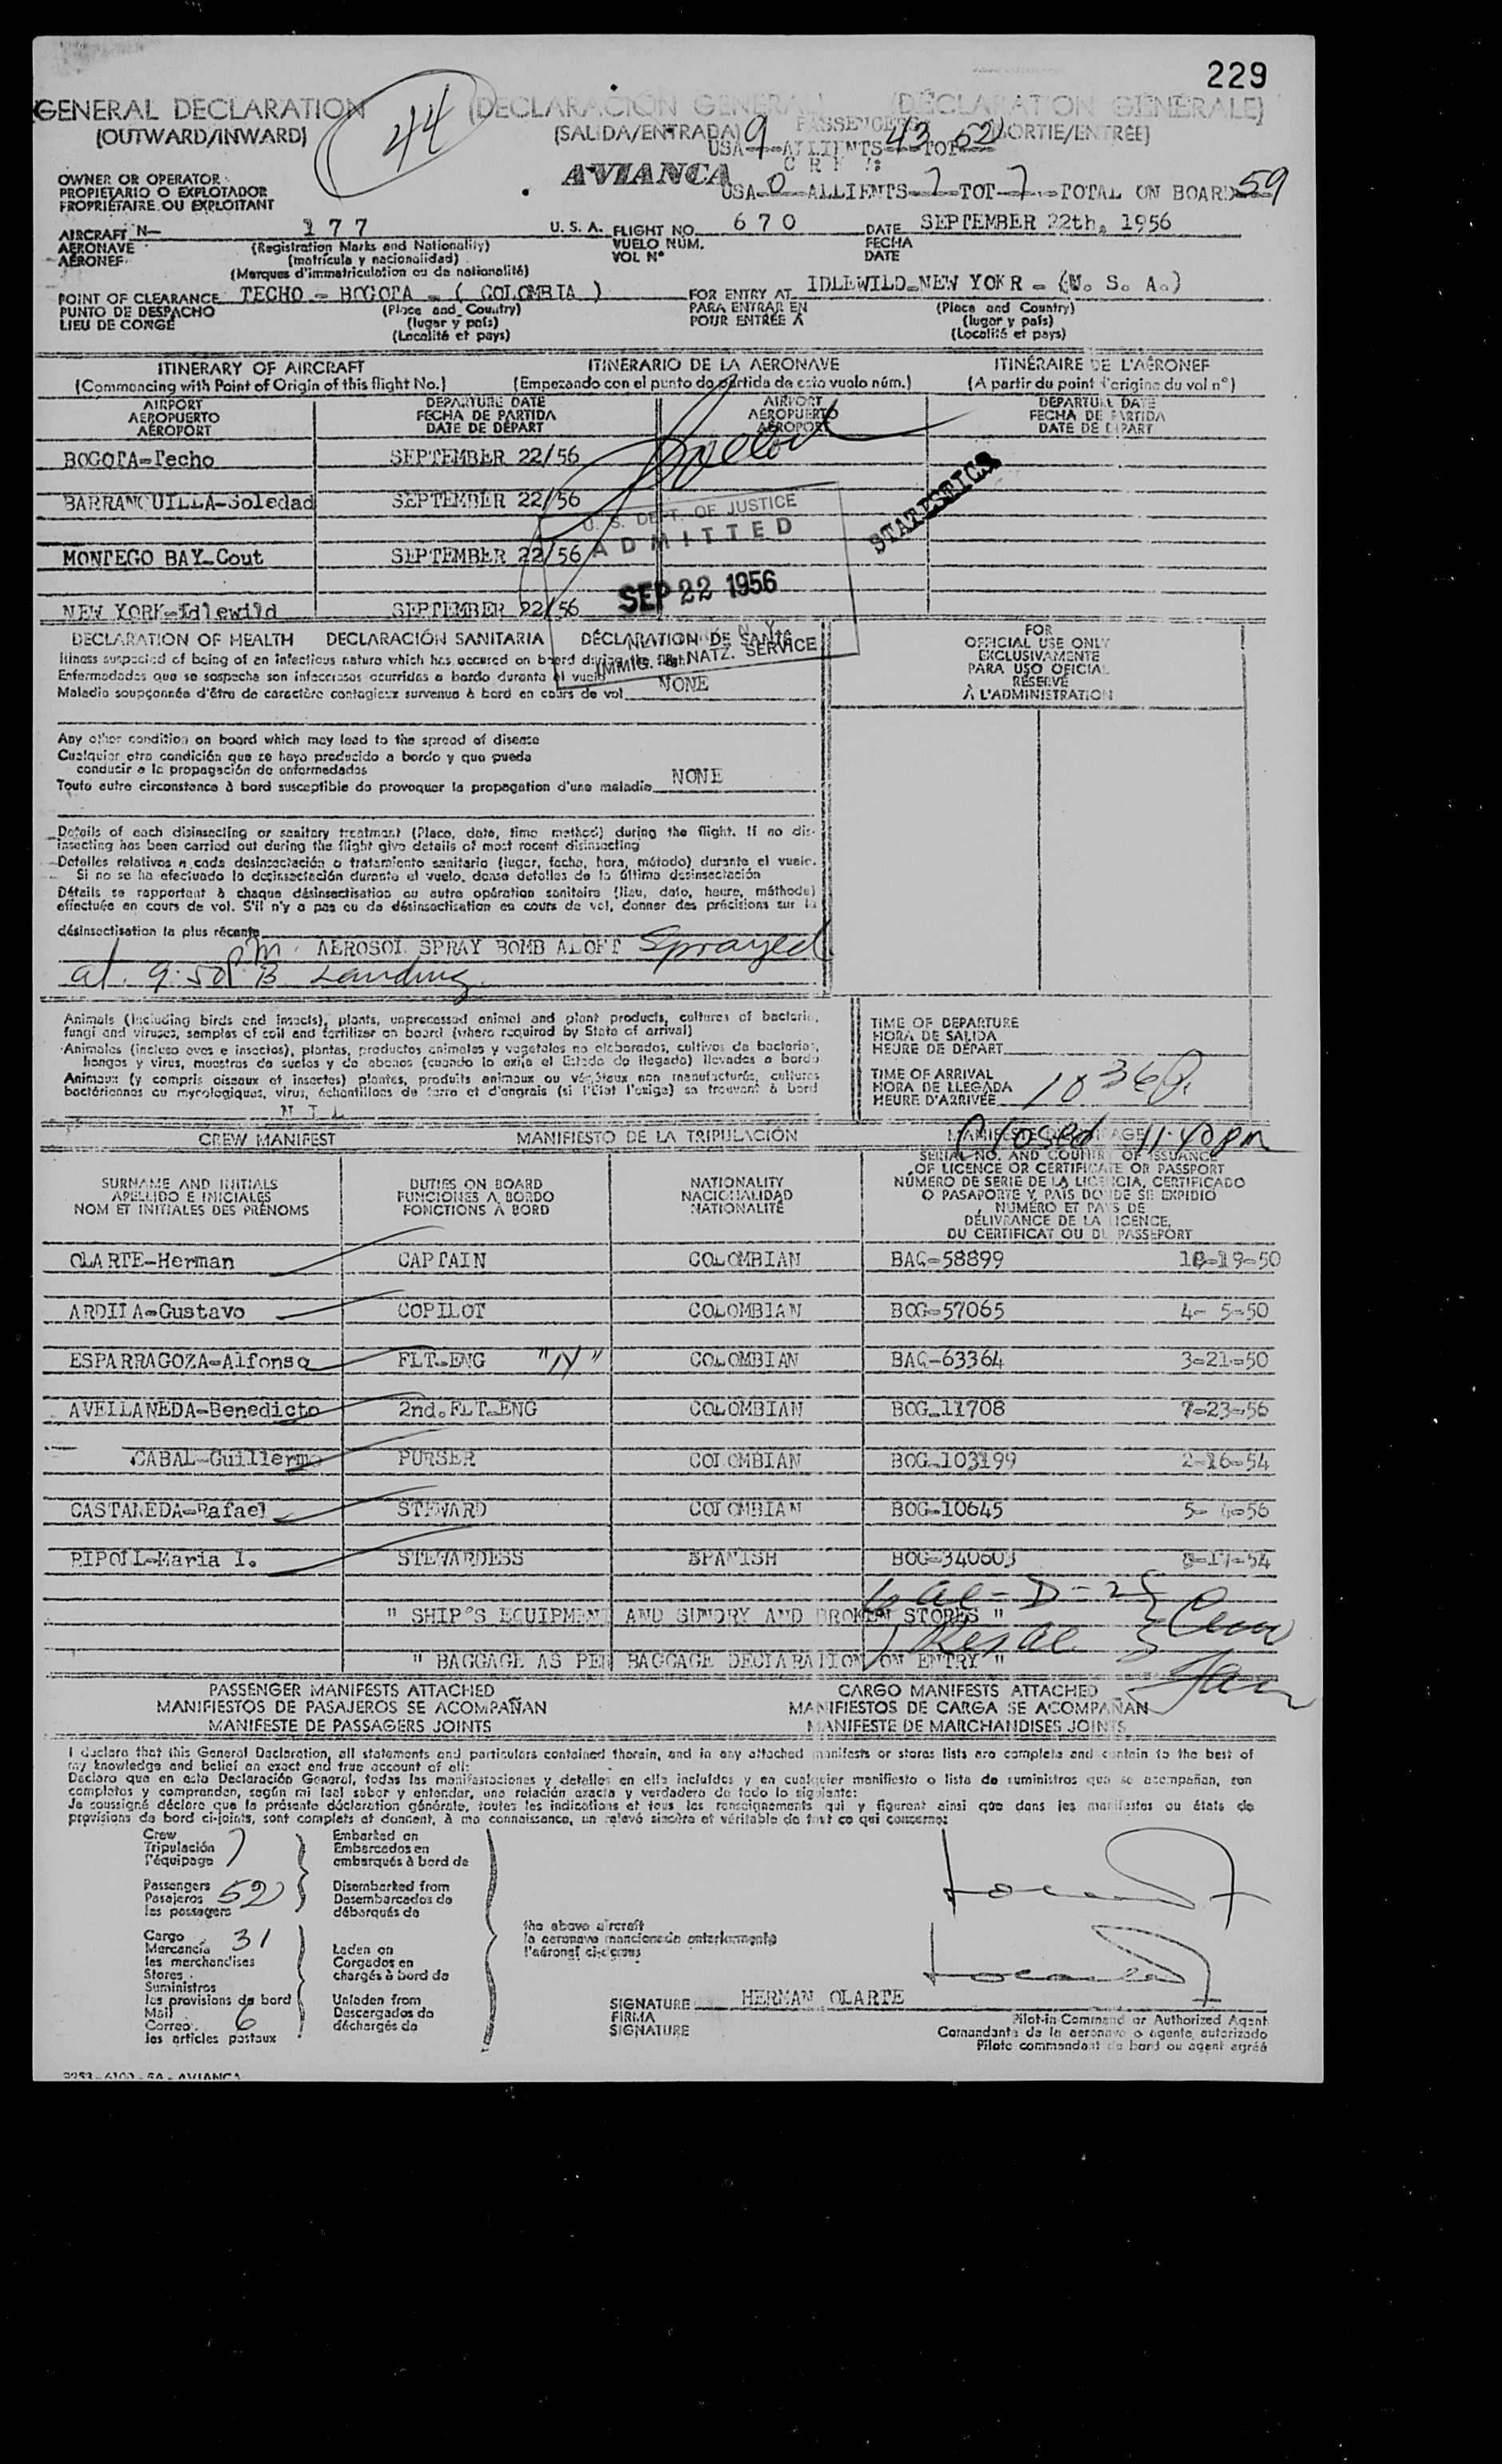 229
GENERAL DECLARATION (DECLARACIÓN GENERAL) (DÉCLARATION GÉNÉRALE)
44
(OUTWARD/INWARD) (SALIDA/ENTRADA) (SORTIE/ENTRÉE)
PASSENGERS
USA 9 ALLIENTS 43 TOT 52
AVIANCA
USA-0-ALLIENTS-7-TOT-7-TOTAL ON BOARD 59
OWNER OR OPERATOR
PROPIETARIO O EXPLOTADOR
PROPRIÉTAIRE OU EXPLOITANT
AIRCRAFT N- 177 U. S. A. FLIGHT NO. 670 DATE SEPTEMBER 22th, 1956
AERONAVE (Registration Marks and Nationality) VUELO NÚM. FECHA
AÉRONEF (matrícula y nacionalidad) VOL Nº DATE
(Marques d'immatriculation ou de nationalité)
POINT OF CLEARANCE TECHO - BOGOTA - ( COLOMBIA ) FOR ENTRY AT IDLEWILD-NEW YOKR - (U. S. A.)
PUNTO DE DESPACHO (Place and Country) PARA ENTRAR EN (Place and Country)
LIEU DE CONGÉ (lugar y país) POUR ENTRÉE À (lugar y país)
(Localité et pays) (Localité et pays)
ITINERARY OF AIRCRAFT ITINERARIO DE LA AERONAVE ITINÉRAIRE DE L'AÉRONEF
(Commencing with Point of Origin of this flight No.) (Empezando con el punto de partida de este vuelo núm.) (A partir du point d'origine du vol nº)
AIRPORT DEPARTURE DATE AIRPORT DEPARTURE DATE
AEROPUERTO FECHA DE PARTIDA AEROPUERTO FECHA DE PARTIDA
AÉROPORT DATE DE DÉPART AÉROPORT DATE DE DÉPART
BOGOTA-Techo SEPTEMBER 22/56
BARRANQUILLA-Soledad SEPTEMBER 22/56
MONTEGO BAY-Cout SEPTEMBER 22/56
NEW YORK-Idlewild SEPTEMBER 22/56
STATISTICS
U. S. DEPT. OF JUSTICE
ADMITTED
SEP 22 1956
NEW YORK, N. Y.
IMMIG. & NATZ. SERVICE
DECLARATION OF HEALTH DECLARACIÓN SANITARIA DÉCLARATION DE SANTÉ
Illness suspected of being of an infectious nature which has occured on board during the flight
Enfermedades que se sospecha son infecciosas ocurridas a bordo durante el vuelo
Maladie soupçonnée d'être de caractère contagieux survenue à bord en cours de vol NONE
FOR
OFFICIAL USE ONLY
EXCLUSIVAMENTE
PARA USO OFICIAL
RÉSERVÉ
À L'ADMINISTRATION
Any other condition on board which may lead to the spread of disease
Cualquier otra condición que se haya producido a bordo y que pueda
conducir a la propagación de enfermedades
Toute autre circonstance à bord susceptible de provoquer la propagation d'une maladie NONE
Details of each disinsecting or sanitary treatment (Place, date, time method) during the flight. If no dis-
insecting has been carried out during the flight give details of most recent disinsecting
Detalles relativos a cada desinsectación o tratamiento sanitario (lugar, fecha, hora, método) durante el vuelo.
Si no se ha efectuado la desinsectación durante el vuelo, dense detalles de la última desinsectación
Détails se rapportent à chaque désinsectisation ou autre opération sanitaire (lieu, date, heure, méthode)
effectuée en cours de vol. S'il n'y a pas eu de désinsectisation en cours de vol, donner des précisions sur la
désinsectisation la plus récente
AEROSOL SPRAY BOMB ALOFT Sprayed
at 9:50 PM B Landing
Animals (including birds and insects), plants, unprocessed animal and plant products, cultures of bacteria,
fungi and viruses, samples of soil and fertilizer on board (where required by State of arrival)
Animales (incluso aves e insectos), plantas, productos animales y vegetales no elaborados, cultivos de bacterias,
hongos y virus, muestras de suelos y de abonos (cuando lo exija el Estado de llegada) llevados a bordo
Animaux (y compris oiseaux et insectes) plantes, produits animaux ou végétaux non manufacturés, cultures
bactériennes ou mycologiques, virus, échantillons de terre et d'engrais (si l'Etat l'exige) se trouvant à bord
N I L
TIME OF DEPARTURE
HORA DE SALIDA
HEURE DE DÉPART
TIME OF ARRIVAL
HORA DE LLEGADA
HEURE D'ARRIVÉE 10 36 P.
Closed 11:40 pm
CREW MANIFEST MANIFIESTO DE LA TRIPULACIÓN
SURNAME AND INITIALS DUTIES ON BOARD NATIONALITY SERIAL NO. AND COUNTRY OF ISSUANCE
APELLIDO E INICIALES FUNCIONES A BORDO NACIONALIDAD OF LICENCE OR CERTIFICATE OR PASSPORT
NOM ET INITIALES DES PRÉNOMS FONCTIONS À BORD NATIONALITÉ NÚMERO DE SERIE DE LA LICENCIA, CERTIFICADO
O PASAPORTE Y PAÍS DONDE SE EXPIDIÓ
NUMÉRO ET PAYS DE
DÉLIVRANCE DE LA LICENCE,
DU CERTIFICAT OU DU PASSEPORT
OLARTE-Herman CAPTAIN COLOMBIAN BAQ-58899 10-19-50
ARDILA-Gustavo COPILOT COLOMBIAN BOG-57065 4- 5-50
ESPARRAGOZA-Alfonso FLT-ENG COLOMBIAN BAQ-63364 3-21-50
AVELLANEDA-Benedicto 2nd.FLT-ENG COLOMBIAN BOG-11708 7-23-56
CABAL-Guillermo PURSER COLOMBIAN BOG-103199 2-16-54
CASTAÑEDA-Rafael STEWARD COLOMBIAN BOG-10645 5- 4-56
RIPOLL-Maria I. STEWARDESS SPANISH BOG-340603 8-17-54
" SHIP'S EQUIPMENT AND SUNDRY AND BROKEN STORES "
" BAGGAGE AS PER BAGGAGE DECLARATION ON ENTRY "
PASSENGER MANIFESTS ATTACHED CARGO MANIFESTS ATTACHED
MANIFIESTOS DE PASAJEROS SE ACOMPAÑAN MANIFIESTOS DE CARGA SE ACOMPAÑAN
MANIFESTE DE PASSAGERS JOINTS MANIFESTE DE MARCHANDISES JOINTS
I declare that this General Declaration, all statements and particulars contained therein, and in any attached manifests or stores lists are complete and contain to the best of
my knowledge and belief an exact and true account of all:
Declaro que en esta Declaración General, todas las manifestaciones y detalles en ella incluídos y en cualquier manifiesto o lista de suministros que se acompañan, son
completos y comprenden, según mi leal saber y entender, una relación exacta y verdadera de todo lo siguiente:
Je soussigné déclare que la présente déclaration générale, toutes les indications et tous les renseignements qui y figurent ainsi que dans les manifestes ou états de
provisions de bord ci-joints, sont complets et donnent, à ma connaissance, un relevé sincère et véritable de tout ce qui concerne:
Crew Embarked on
Tripulación 7 Embarcados en
l'équipage embarqués à bord de
Passengers Disembarked from
Pasajeros 52 Desembarcados de
les passagers débarqués de
the above aircraft
la aeronave mencionada anteriormente
l'aéronef ci-dessus
Cargo 31
Mercancía Laden on
les merchandises Cargados en
Stores chargés à bord de
Suministros
les provisions de bord Unladen from
Mail 6 Descargados de
Correo déchargés de
les articles postaux
SIGNATURE HERMAN OLARTE
FIRMA
SIGNATURE
Pilot-in-Command or Authorized Agent
Comandante de la aeronave o agente autorizado
Pilote commandant de bord ou agent agréé